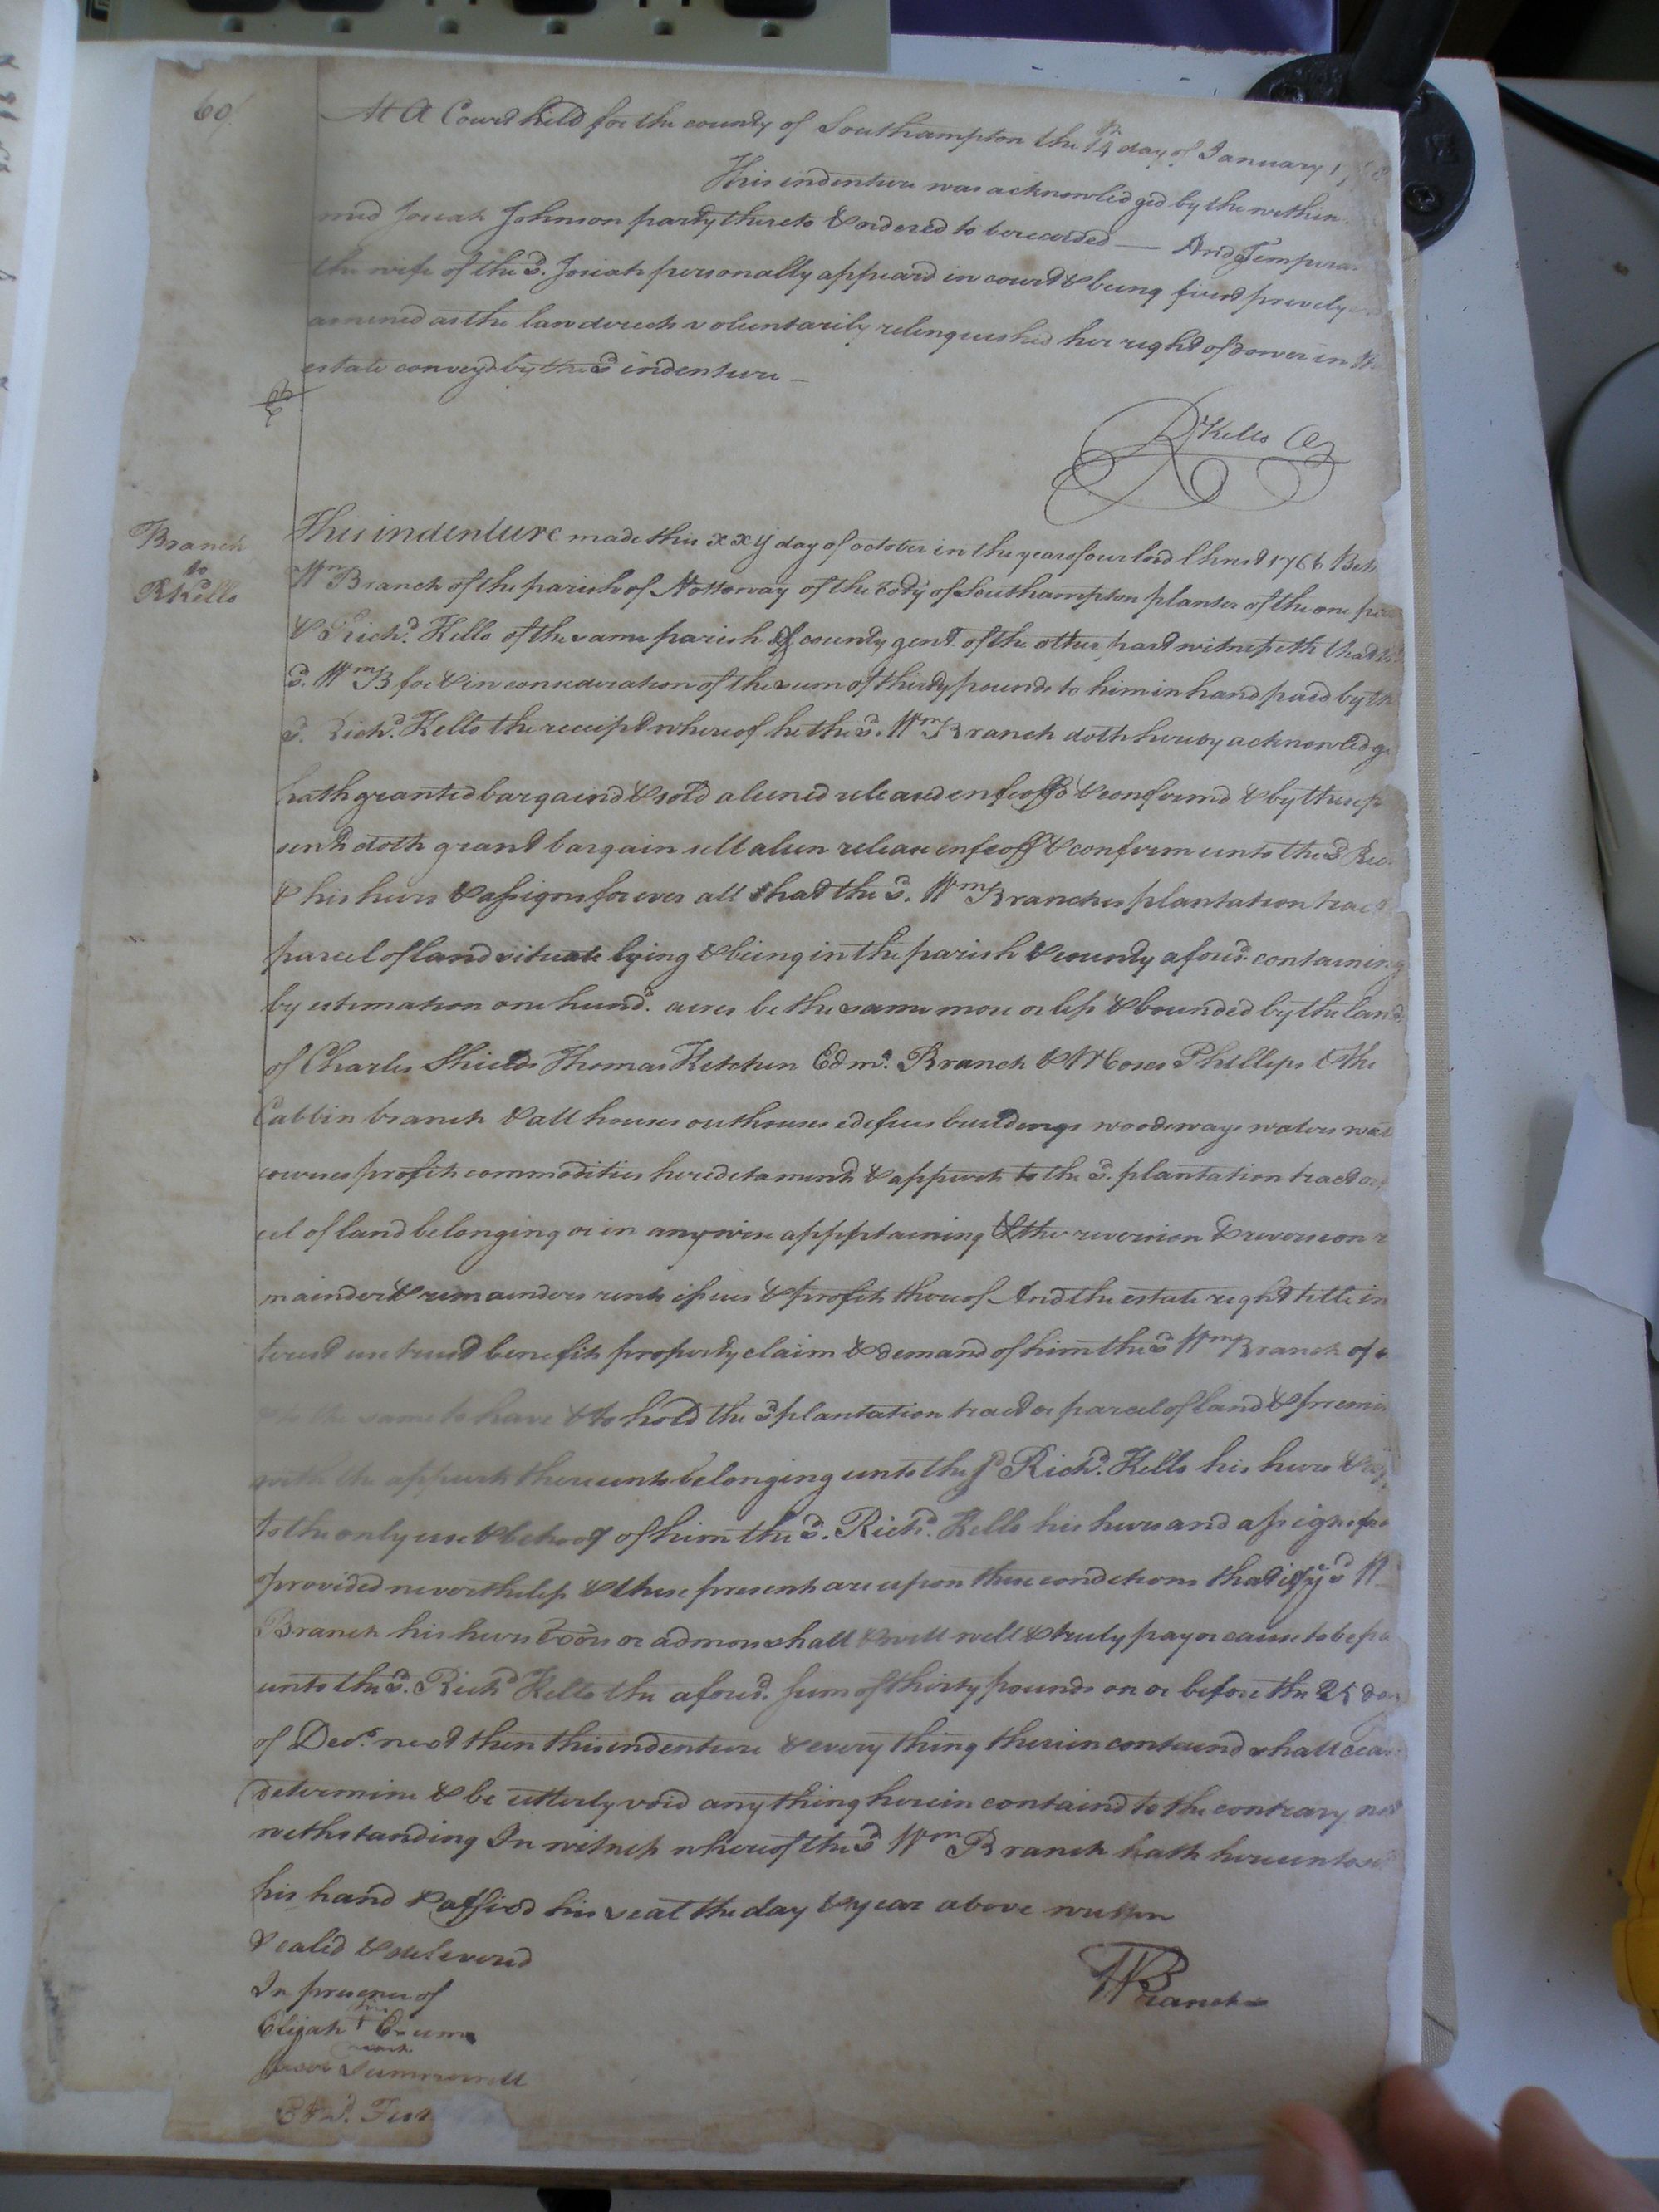 60/
At A Court held for the county of Southampton the 14th day of January 17
This indenture was acknowledged by the within
med Josiah Johnson party thereto & ordered to be recorded — And Tempera
the wife of the sd. Josiah personally appeard in court & being first privily
amined as the law directs voluntarily relinquished her right of dower in th
estate conveyd by the sd indenture —
RKello Clk
Branch
to
RKello
This indenture made this xxij day of october in the year of our lord Christ 1766 Betw
Wm Branch of the parish of Nottoway of the coty of Southampton planter of the one par
& Richd. Kello of the same parish & county gent. of the other part witnesseth that
sd. Wm B for & in consideration of the sum of thirty pounds to him in hand paid by th
sd. Richd. Kello the receipt whereof he the sd. Wm Branch doth hereby acknowledge
hath granted bargaind & sold aliened released enfeoffd & confirmd & by these p
sents doth grant bargain sell alien release enfeoff & confirm unto the sd Rich
& his heirs & assigns for ever all that the sd. Wm Branches plantation tract
parcel of land situate lying & being in the parish & county aforesd. containing
by estimation one hund. acres be the same more or less & bounded by the land
of Charles Shields Thomas Kitchen Edmd. Branch & Moses Phillips & the
Cabbin branch & all houses outhouses edefices buildings woods ways waters wat
courses profits commodities hereditaments & appurts to the sd. plantation tract or
cel of land belonging or in anywise appptaining & the reversion & reversion r
mainder & remainders rents issues & profits thereof And the estate right title in
terest use trust benefit property claim & demand of him the sd Wm Branch of
the same to have & to hold the sd plantation tract or parcel of land & premis
with the appurts thereunto belonging unto the sd Richd. Kello his heirs &
to the only use & behoof of him the sd. Richd. Kello his heirs and assigns for
provided nevertheless & these presents are upon these conditions that if ye sd W
Branch his heirs Exors or admors shall & will well & truly pay or cause to be pa
unto the sd. Richd Kello the aforesd. sum of thirty pounds on or before the 25 day
of Decr. next then this indenture & every thing therein containd shall ceas
determine & be utterly void any thing herein containd to the contrary not
withstanding In witness whereof the sd Wm Branch hath hereunto set
his hand & affixd his seal the day & year above written
Sealed & delivered
In presence of
Elijah his Crum
mark
Summerell
WBranch